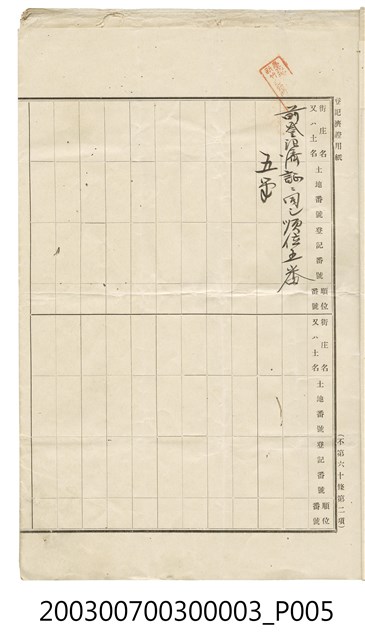 登記濟證用紙
(不第六十條第二項)
街庄名又ハ土名
土地番號
登記番號
順位番號
街庄名又ハ土名
土地番號
登記番號
順位番號
前登記濟證ニ同シ順位五番
200300700300003_P005